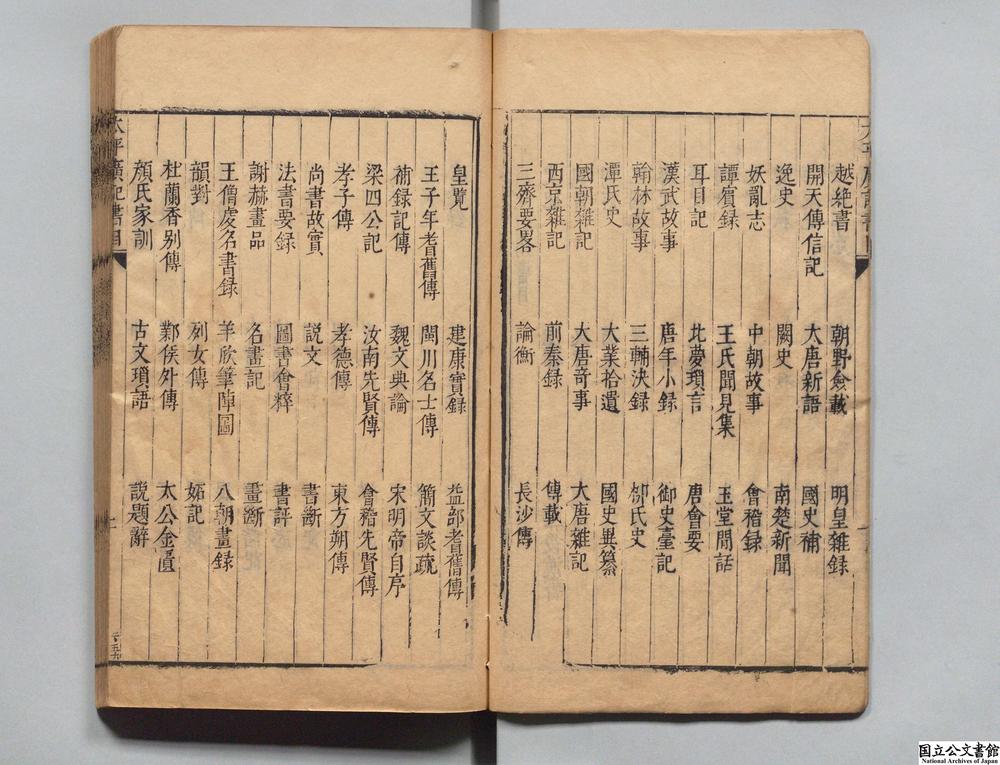 越絶書 朝野僉載 明皇雜録
開天傳信記 大唐新語 國史補
逸史 闕史 南楚新聞
妖亂志 中朝故事 會稽録
譚賓録 王氏聞見集 玉堂閒話
耳目記 北夢瑣言 唐會要
漢武故事 唐年小録 御史臺記
翰林故事 三輔決録 柳氏史
潭氏史 大業拾遺 國史異纂
國朝雜記 大唐奇事 大唐雜記
西京雜記 前秦録 傳載
三齊要畧 論衡 長沙傳
皇覽 建康實録 益部耆舊傳
王子年耆舊傳 閩川名士傳 簡文談疏
補録記傳 魏文典論 宋明帝自序
梁四公記 汝南先賢傳 會稽先賢傳
孝子傳 孝德傳 東方朔傳
尚書故實 説文 書斷
法書要録 圖書會粹 書評
謝赫畫品 名畫記 畫斷
王僧虔名書録 羊欣筆陣圖 八朝畫録
韻對 列女傳 妬記
杜蘭香别傳 鄴侯外傳 太公金匱
顔氏家訓 古文瑣語 説題辭
太平廣記書目
国立公文書館
National Archives of Japan